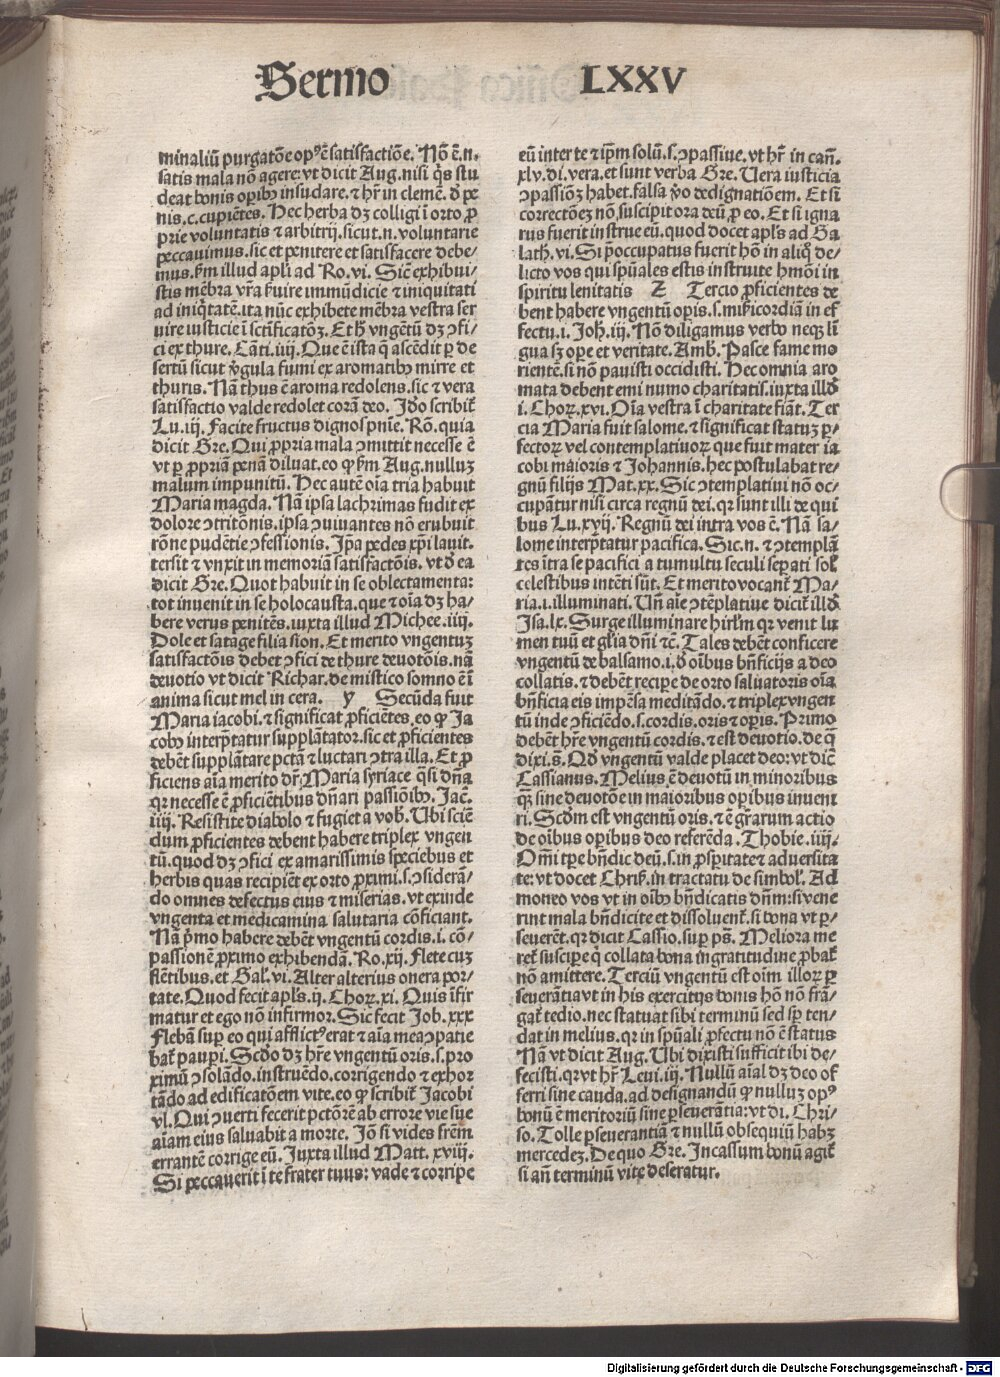 Sermo LXXV
minaliū purgatōe opꝰ ē satisfactiōe. Nō ē.n.
satis mala nō agere: vt dicit Aug. nisi q̇s stu
deat bonis oꝑibꝰ insudare. ⁊ hr̄ in clemē. ꝺ pe
nis. c. cupiētes. Hec herba dꝫ colligi ī orto ꝓ
prie voluntatis ⁊ arbitrij. sicut.n. voluntarie
peccauimus. sic et penitere et satisfacere debe/
mus. ẜm illud apl'i ad Ro. vi. Sic̄ exhibui/
stis mēbra vr̄a ẜuire immūdicie ⁊ iniquitati
ad iniq̇tatē. ita nūc exhibete mēbra vestra ser
uire iusticie ī sctīficatōꝫ. Et hꝰ vngētū dꝫ ↄfi/
ci ex thure. Cāti. iiij. Que ē ista q̄ ascēdit ꝑ de
sertū sicut v̓gula fumi ex aromatibꝰ mirre et
thuris. Nā thus ē aroma redolens. sic ⁊ vera
satisfactio valde redolet corā deo. Iōo scribit̄
Lu. iij. Facite fructus dignos pn̄ie. Rō. quia
dicit Gre. Qui ꝓpria mala ↄmittit necesse ē
vt ꝑ ꝓpriā penā diluat. eo ꝙ ẜm Aug. nulluꝫ
malum impunitū. Hec autē oīa tria habuit
Maria magda. Nā ipsa lachrimas fudit ex
dolore ↄtritōnis. ipsa ↄuiuantes nō erubuit
rōne pudētie ↄfessionis. Ip̄a pedes xp̄i lauit.
tersit ⁊ vnxit in memoriā satisfactōis. vt ꝺ ea
dicit Gre. Quot habuit in se oblectamenta:
tot inuenit in se holocausta. que ⁊ oīa dꝫ ha/
bere verus penitēs. iuxta illud Michee. iiij.
Dole et satage filia sion. Et merito vngentuꝫ
satisfactōis debet ↄfici de thure deuotōis. nā
deuotio vt dicit Richar. de mistico somno ē ī
anima sicut mel in cera. y Secūda fuit
Maria iacobi. ⁊ significat ꝓficiētes. eo ꝙ Ja
cobꝰ interp̄tatur supplātator. sic et ꝓficientes
debēt supplātare pctā ⁊ luctari ↄtra illa. Et ꝓ
ficiens aīa merito dr̄. Maria syriace q̄si dn̄a
qꝛ necesse ē ꝓficiētibus dn̄ari passiōibꝰ. Jac̄.
iiij. Resistite diabolo ⁊ fugiet a vob̓. Ubi sciē
dum ꝓficientes debent habere triplex vngen
tū. quod dꝫ ↄfici ex amarissimis speciebus et
herbis quas recipiēt ex orto ꝓximi. s. ↄsiderā/
do omnes defectus eius ⁊ miserias. vt exinde
vngenta et medicamina salutaria cōficiant.
Nā p̓mo habere debēt vngentū cordis. i. cō/
passionē ꝓximo exhibendā. Ro. xij. Flete cuꝫ
flētibus. et Gal'. vi. Alter alterius onera por/
tate. Quod fecit apl's. ij. Choꝝ. xi. Quis īfir
matur et ego nō infirmor. Sic fecit Job. xxx
Flebā suꝑ eo qui afflictꝰ erat ⁊ aīa mea ↄpatie
bat̄ pauꝑi. Scd̓o dꝫ hr̄e vngentū oris. s. pro
ximū ↄsolādo. instruēdo. corrigendo ⁊ exhor
tādo ad edificatōem vite. eo ꝙ scribit̄ Jacobi
vl. Qui ↄuerti fecerit pctōrē ab errore vie sue
aīam eius saluabit a morte. Iō si vides fr̄em
errantē corrige eū. Juxta illud Matt. xviij.
Si peccauerit ī te frater tuus: vade ⁊ corripe
eū inter te ⁊ ip̄m solū. s. ↄpassiue. vt hr̄ in can̄.
xlv. di. vera. et sunt verba Gre. Uera iusticia
ↄpassioꝫ habet. falsa v̓o dedignatiōem. Et si
correctōeꝫ nō suscipit ora deū ꝓ eo. Et si igna
rus fuerit instrue eū. quod docet apl's ad Ga
lath. vi. Si p̄occupatus fuerit hō in aliq̊ de/
licto vos qui spūales estis instruite hmōi in
spiritu lenitatis Z Tercio ꝓficientes de
bent habere vngentū opis. s. misẜicordiā in ef
fectu. i. Joh. iij. Nō diligamus verbo neqꝫ lī
gua sꝫ oꝑe et veritate. Amb. Pasce fame mo
rientē. si nō pauisti occidisti. Hec omnia aro
mata debent emi numo charitatis. iuxta illđ
i. Choꝝ. xvi. Oīa vestra ī charitate fiāt. Ter
cia Maria fuit salome. ⁊ significat statuꝫ ꝑ/
fectoꝝ vel contemplatiuoꝝ que fuit mater ia
cobi maioris ⁊ Johannis. hec postulabat re/
gnū filijs Mat. xx. Sic ↄtemplatiui nō oc/
cupātur nisi circa regnū dei. qꝛ sunt illi de qui
bus Lu. xvij. Regnū dei intra vos ē. Nā sa/
lome interp̄tatur pacifica. Sic.n. ⁊ ↄtemplā
tes ītra se pacifici a tumultu seculi seꝑati sol'
celestibus intēti sūt. Et merito vocant̄ Ma/
ria. i. illuminati. Un̄ aīe ↄtēplatiue dicit̄ illđ
Isa. lx. Surge illuminare hirl'm qꝛ venit lu
men tuū et gl'ia dn̄i ⁊c̄. Tales debēt conficere
vngentū de balsamo. i. ꝺ oībus bn̄ficijs a deo
collatis. ⁊ debēt recipe de orto saluatoris oīa
bn̄ficia eis impēsa meditādo. ⁊ triplex vngen
tū inde ↄficiēdo. s. cordis. oris ⁊ oꝑis. Primo
debēt hr̄e vngentū cordis. ⁊ est deuotio. de q̄
dixi. s. Qđ vngentū valde placet deo: vt dic̄
Cassianus. Melius ē deuotū in minoribus
q̄ꝫ sine deuotōe in maioribus oꝑibus inueni
ri. Scd̓m est vngentū oris. ⁊ ē gr̄arum actio
de oībus oꝑibus deo referēda. Thobie. iiij.
Omī tꝑe bn̄dic deū. s. in ꝓsꝑitate ⁊ aduersita
te: vt docet Chris̓. in tractatu de simbol'. Ad
moneo vos vt in oībꝰ bn̄dicatis dn̄m: si vene
rint mala bn̄dicite et dissoluent̄. si bona vt ꝑ/
seuerēt. qꝛ dicit Cassio. suꝑ ps̄. Meliora me
ret̄ suscipe q̇ collata bona ingratitudine ꝓbat̄
nō amittere. Terciū vngentū est oīm illoꝝ ꝑ
seuerātia vt in his exercitijs bonis hō nō frā/
gat̄ tedio. nec statuat sibi terminū sed sꝑ ten/
dat in melius. qꝛ in spūali ꝓfectu nō ē status
Nā vt dicit Aug. Ubi dixisti sufficit ibi de/
fecisti. qꝛ vt hr̄ Leui. iij. Nullū aīal dꝫ deo of
ferri sine cauda. ad designandū ꝙ nulluꝫ opꝰ
bonū ē meritoriū sine ꝑseuerātia: vt di. Chri/
so. Tolle ꝑseuerantiā ⁊ nullū obsequiū habꝫ
mercedeꝫ. De quo Gre. Incassum bonū agit̄
si an̄ terminū vite deseratur.
Digitalisierung gefördert durch die Deutsche Forschungsgemeinschaft - DFG